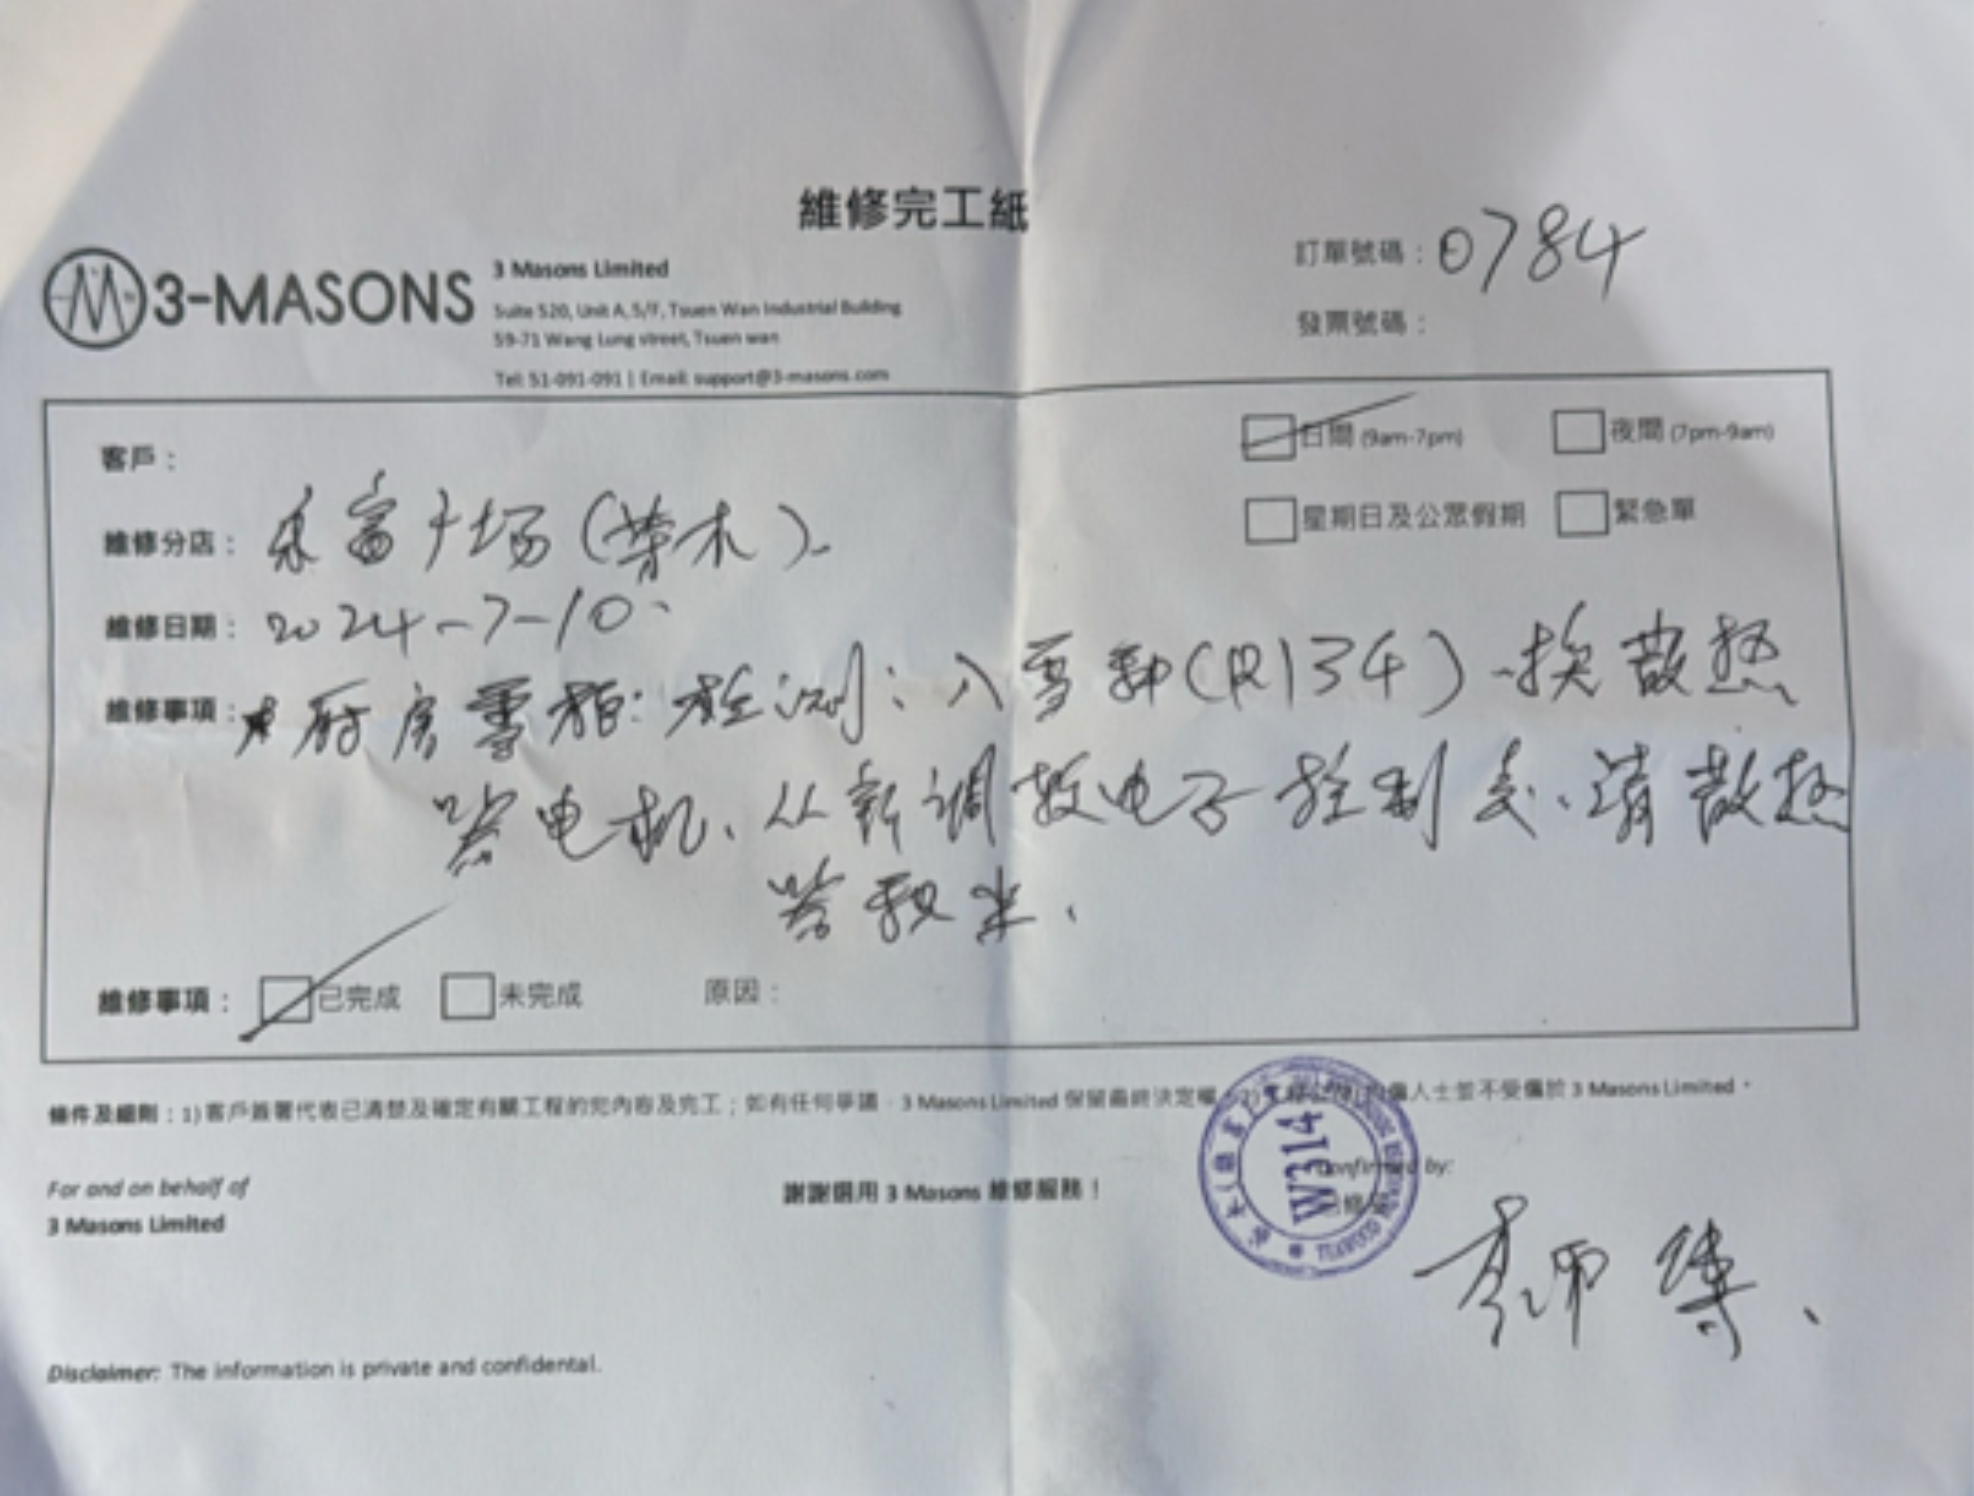 維修完工紙
3-MASONS
3 Masons Limited
Suite 520, Unit A, 5/F, Tsuen Wan Industrial Building
59-71 Wang Lung street, Tsuen wan
Tel: 51-091-091 | Email: support@3-masons.com
訂單號碼：0784
發票號碼：
客戶：
日間 (9am-7pm) 夜間 (7pm-9am)
星期日及公眾假期 緊急單
維修分店：乐富广场(茶木).
維修日期：2024-7-10
維修事項：厨房雪柜:检测:入雪种(R134)、换散热
电机、从新调较电子控制表、清散热
維修事項：已完成 未完成 原因：
條件及細則：1) 客戶簽署代表已清楚及確定有關工程的完內容及完工；如有任何爭議，3 Masons Limited 保留最終決定權 人士並不受僱於 3 Masons Limited。
For and on behalf of
3 Masons Limited
謝謝選用 3 Masons 維修服務！
W314
Confirmed by:
李师傅
Disclaimer: The information is private and confidental.